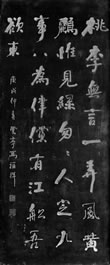 桃李無言一再風黃
鸝惟見綠匆匆人言九
事八為律儻有江船吾
欲東
庚戌仲